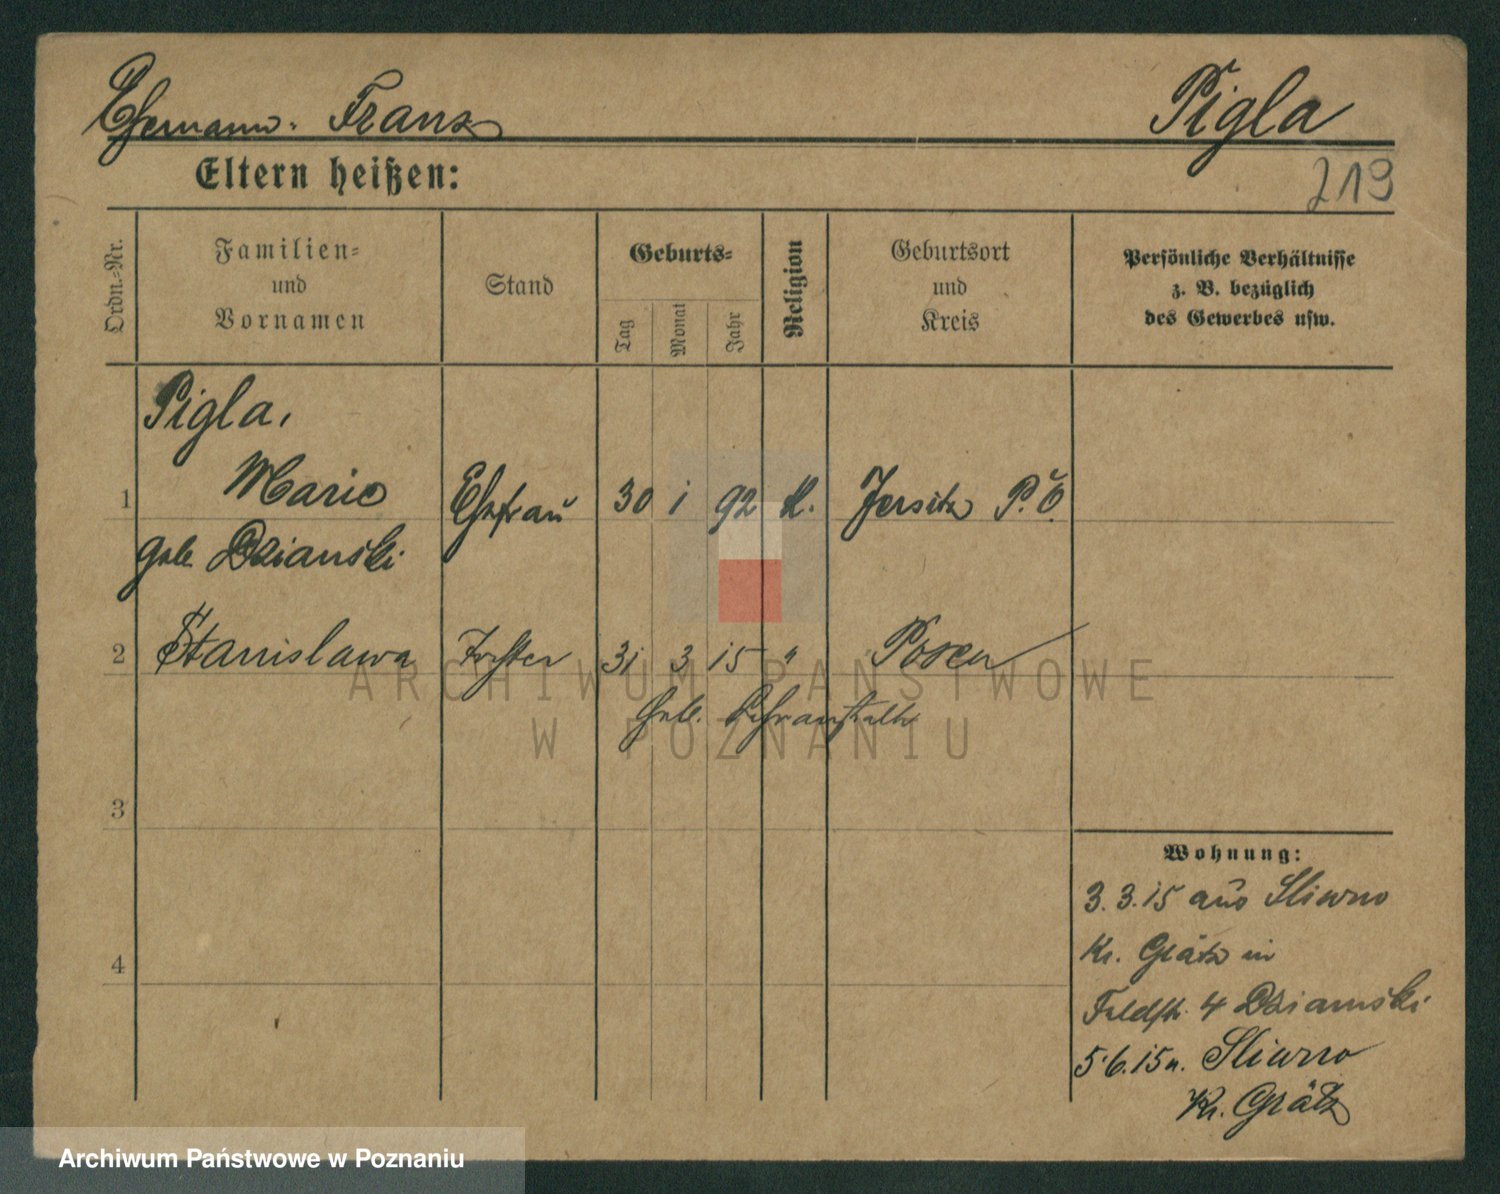 Ehemann. Franz Pigla
Eltern heißen: 219
Ordn.-Nr.
Familien-
und
Vornamen
Stand
Geburts-
Tag
Monat
Jahr
Religion
Geburtsort
und
Kreis
Persönliche Verhältnisse
z. B. bezüglich
des Gewerbes usw.
Pigla,
1 Marie Ehefrau 30 1 92 K. Jersitz P.O.
geb. Dziamski
2 Stanislawa Tochter 31 3 15 " Posen
Geb. Lehranstalt
3
4
Wohnung:
3.3.15 aus Sliwno
Kr. Grätz in
Feldstr. 4 Dziamski
5.6.15 n. Sliwno
Kr. Grätz
ARCHIWUM PAŃSTWOWE
W POZNANIU
Archiwum Państwowe w Poznaniu